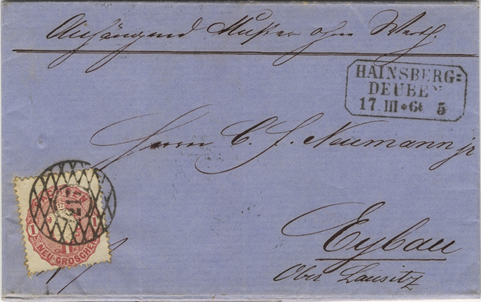 Anhängend Muster ohne Werth.
HAINSBERG=
DEUBEN
17 III *6 5
Herrn C. F. Neumann jr
Eybau
Ober Lausitz
212
1
NEU-GROSCHEN